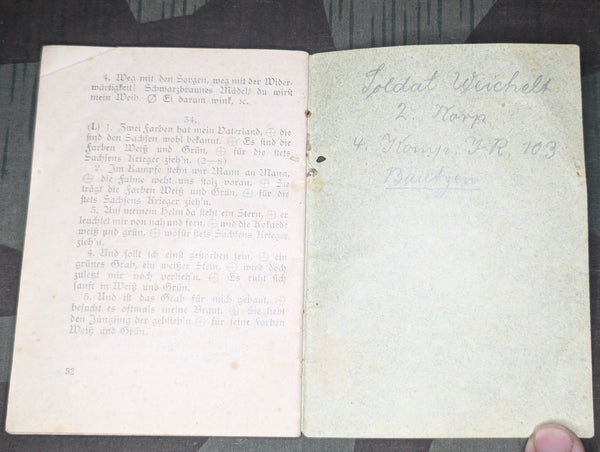 4. Weg mit den Sorgen, weg mit der Wider-
wärtigkeit! Schwarzbraunes Mädel, du wirst
mein Weib. Ei darum wink, ꝛc.
54.
(L) 1. Zwei Farben hat mein Vaterland, ⊕ die
sind den Sachsen wohl bekannt. ⊕ Es sind die
Farben Weiß und Grün, ⊕ für die stets
Sachsens Krieger zieh'n. (2—8)
2. Im Kampfe stehn wir Mann an Mann,
⊕ die Fahne weht uns stolz voran. ⊕ Sie
trägt die Farben Weiß und Grün, ⊕ für die
stets Sachsens Krieger zieh'n.
3. Auf meinem Helm da steht ein Stern, ⊕ er
leuchtet mir von nah und fern, ⊕ und die Kokarde
weiß und grün, ⊕ wofür stets Sachsens Krieger
zieh'n.
4. Und sollt ich einst gestorben sein, ⊕ ein
grünes Grab, ein weißer Stein, ⊕ wird doch
zuletzt mir noch verlieh'n. ⊕ Es ruht sich
sanft in Weiß und Grün.
5. Und ist das Grab für mich gebaut, ⊕
besucht es oftmals meine Braut. ⊕ Sie liebt
den Jüngling der geblieb'n ⊕ für seine Farben
Weiß und Grün.
32
Soldat Weichelt
2. Korp
4. Komp. J-R. 103
Bautzen